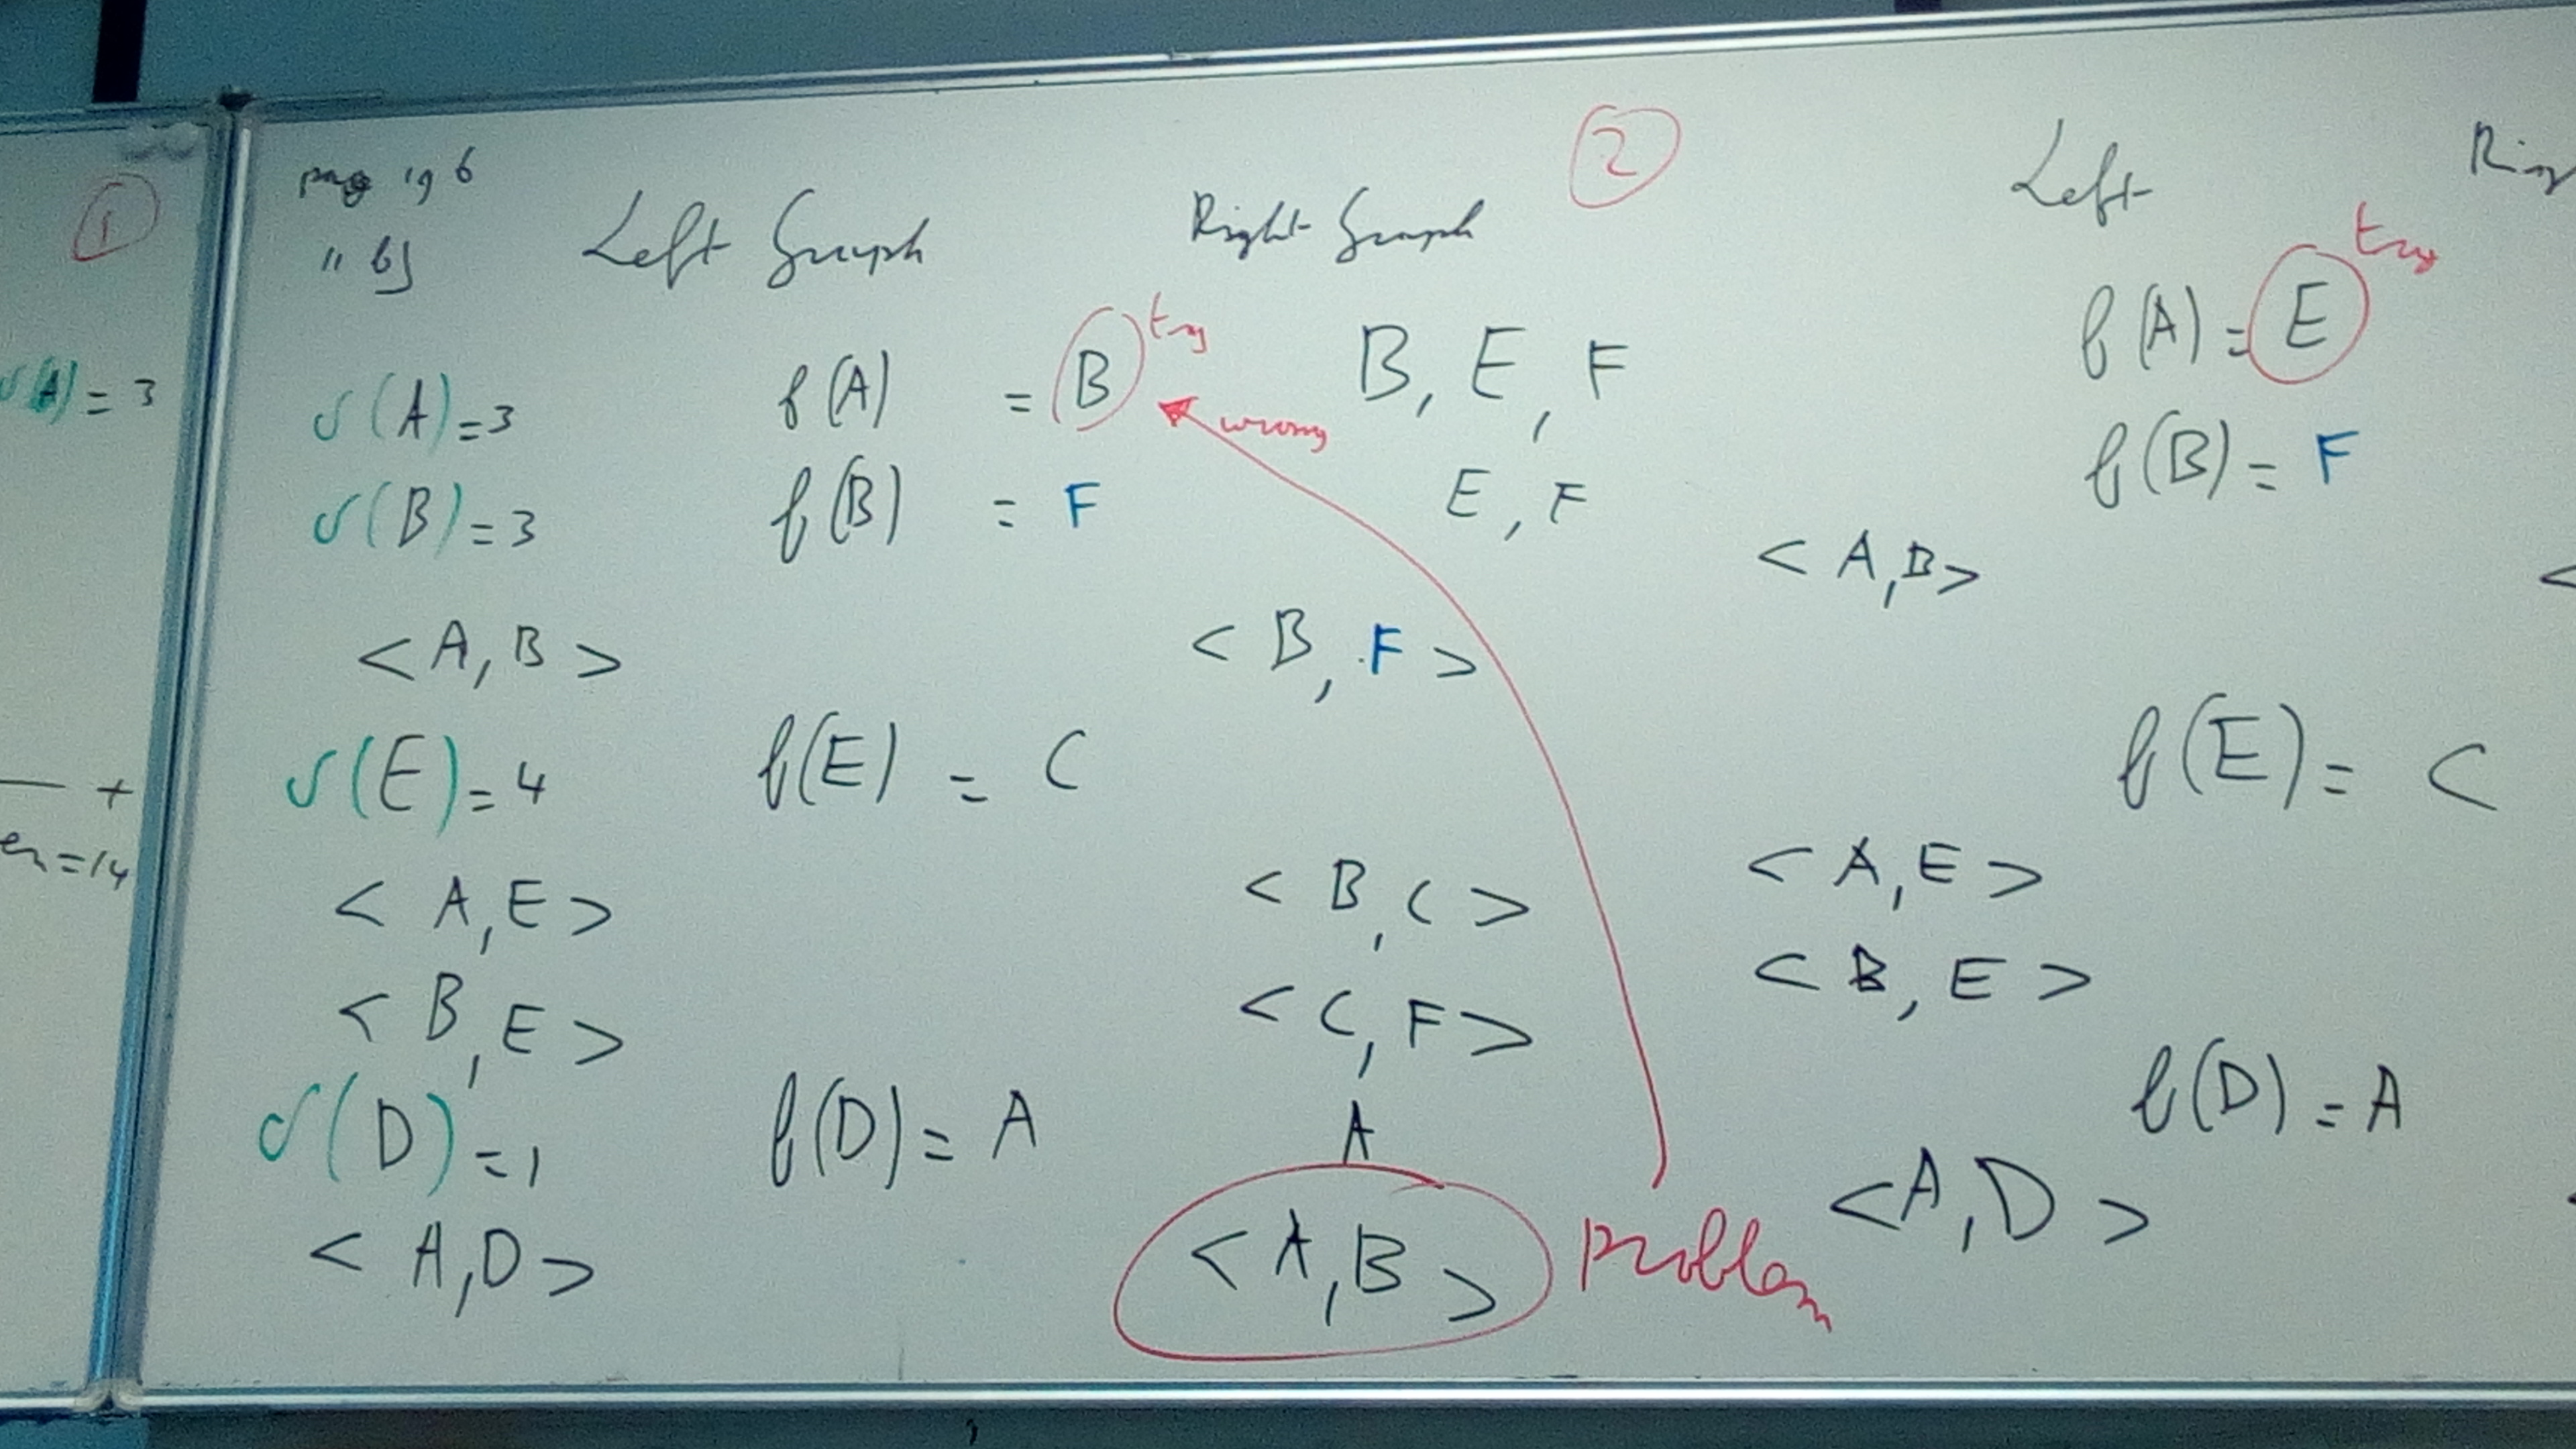 ①
(A) = 3
+
en = 14
page 196
" b)
Left Graph Right Graph ②
δ(A) = 3 f(A) = B try B, E, F
wrong
δ(B) = 3 f(B) = F E, F
< A, B > < B, F >
δ(E) = 4 f(E) = C
< A, E > < B, C >
< B, E > < C, F >
δ(D) = 1 f(D) = A A
< A, D > < A, B > Problem
Left
f(A) = E try
f(B) = F
< A, B > <
f(E) = C
< A, E >
< B, E >
f(D) = A
< A, D >